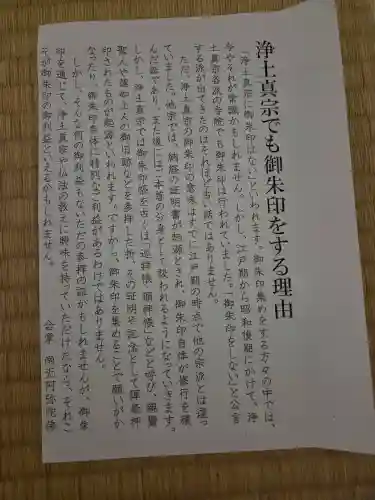 浄土真宗でも御朱印をする理由
「浄土真宗に御朱印はない」といわれます。御朱印集めをする方々の中では、
今やそれが常識かもしれません。しかし、江戸期から昭和後期にかけて、浄
土真宗各派の寺院でも御朱印は行われていました。「御朱印をしない」と公言
する派が出てきたのはそれほど古い話ではありません。
ただ、浄土真宗の御朱印の意味はすでに江戸期の時点で他の宗派とは違っ
ていました。他宗では、納経の証明書が起源とされ、御朱印自体が修行を積
んだ証であり、また後にはご本尊の分身として扱われるようになっていきます。
しかし、浄土真宗では御朱印帳を古くは「巡拝帳、順拝帳」などと呼び、親鸞
聖人や蓮如上人の御旧跡などを参拝した折、その証明や記念として御参拝
印されたものが起源といわれます。ですから、御朱印を集めることで願いがか
なったり、御朱印自体に特別なご利益があるわけではありません。
しかし、そんな何の御利益もないただの参拝印かもしれませんが、御朱
印を通じて、浄土真宗や仏法の教えに興味を持っていただけたなら、それこ
そが御朱印の御利益といえるかもしれません。
合掌 南无阿弥陀佛